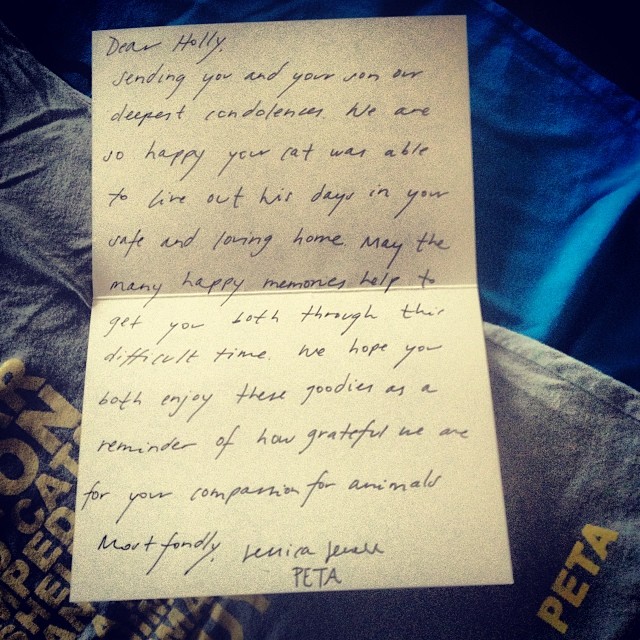 Dear Holly,
Sending you and your son our
deepest condolences. We are
so happy your cat was able
to live out his days in your
safe and loving home. May the
many happy memories help to
get you both through this
difficult time. We hope you
both enjoy these goodies as a
reminder of how grateful we are
for your compassion for animals
Most fondly, Jessica
PETA
PETA